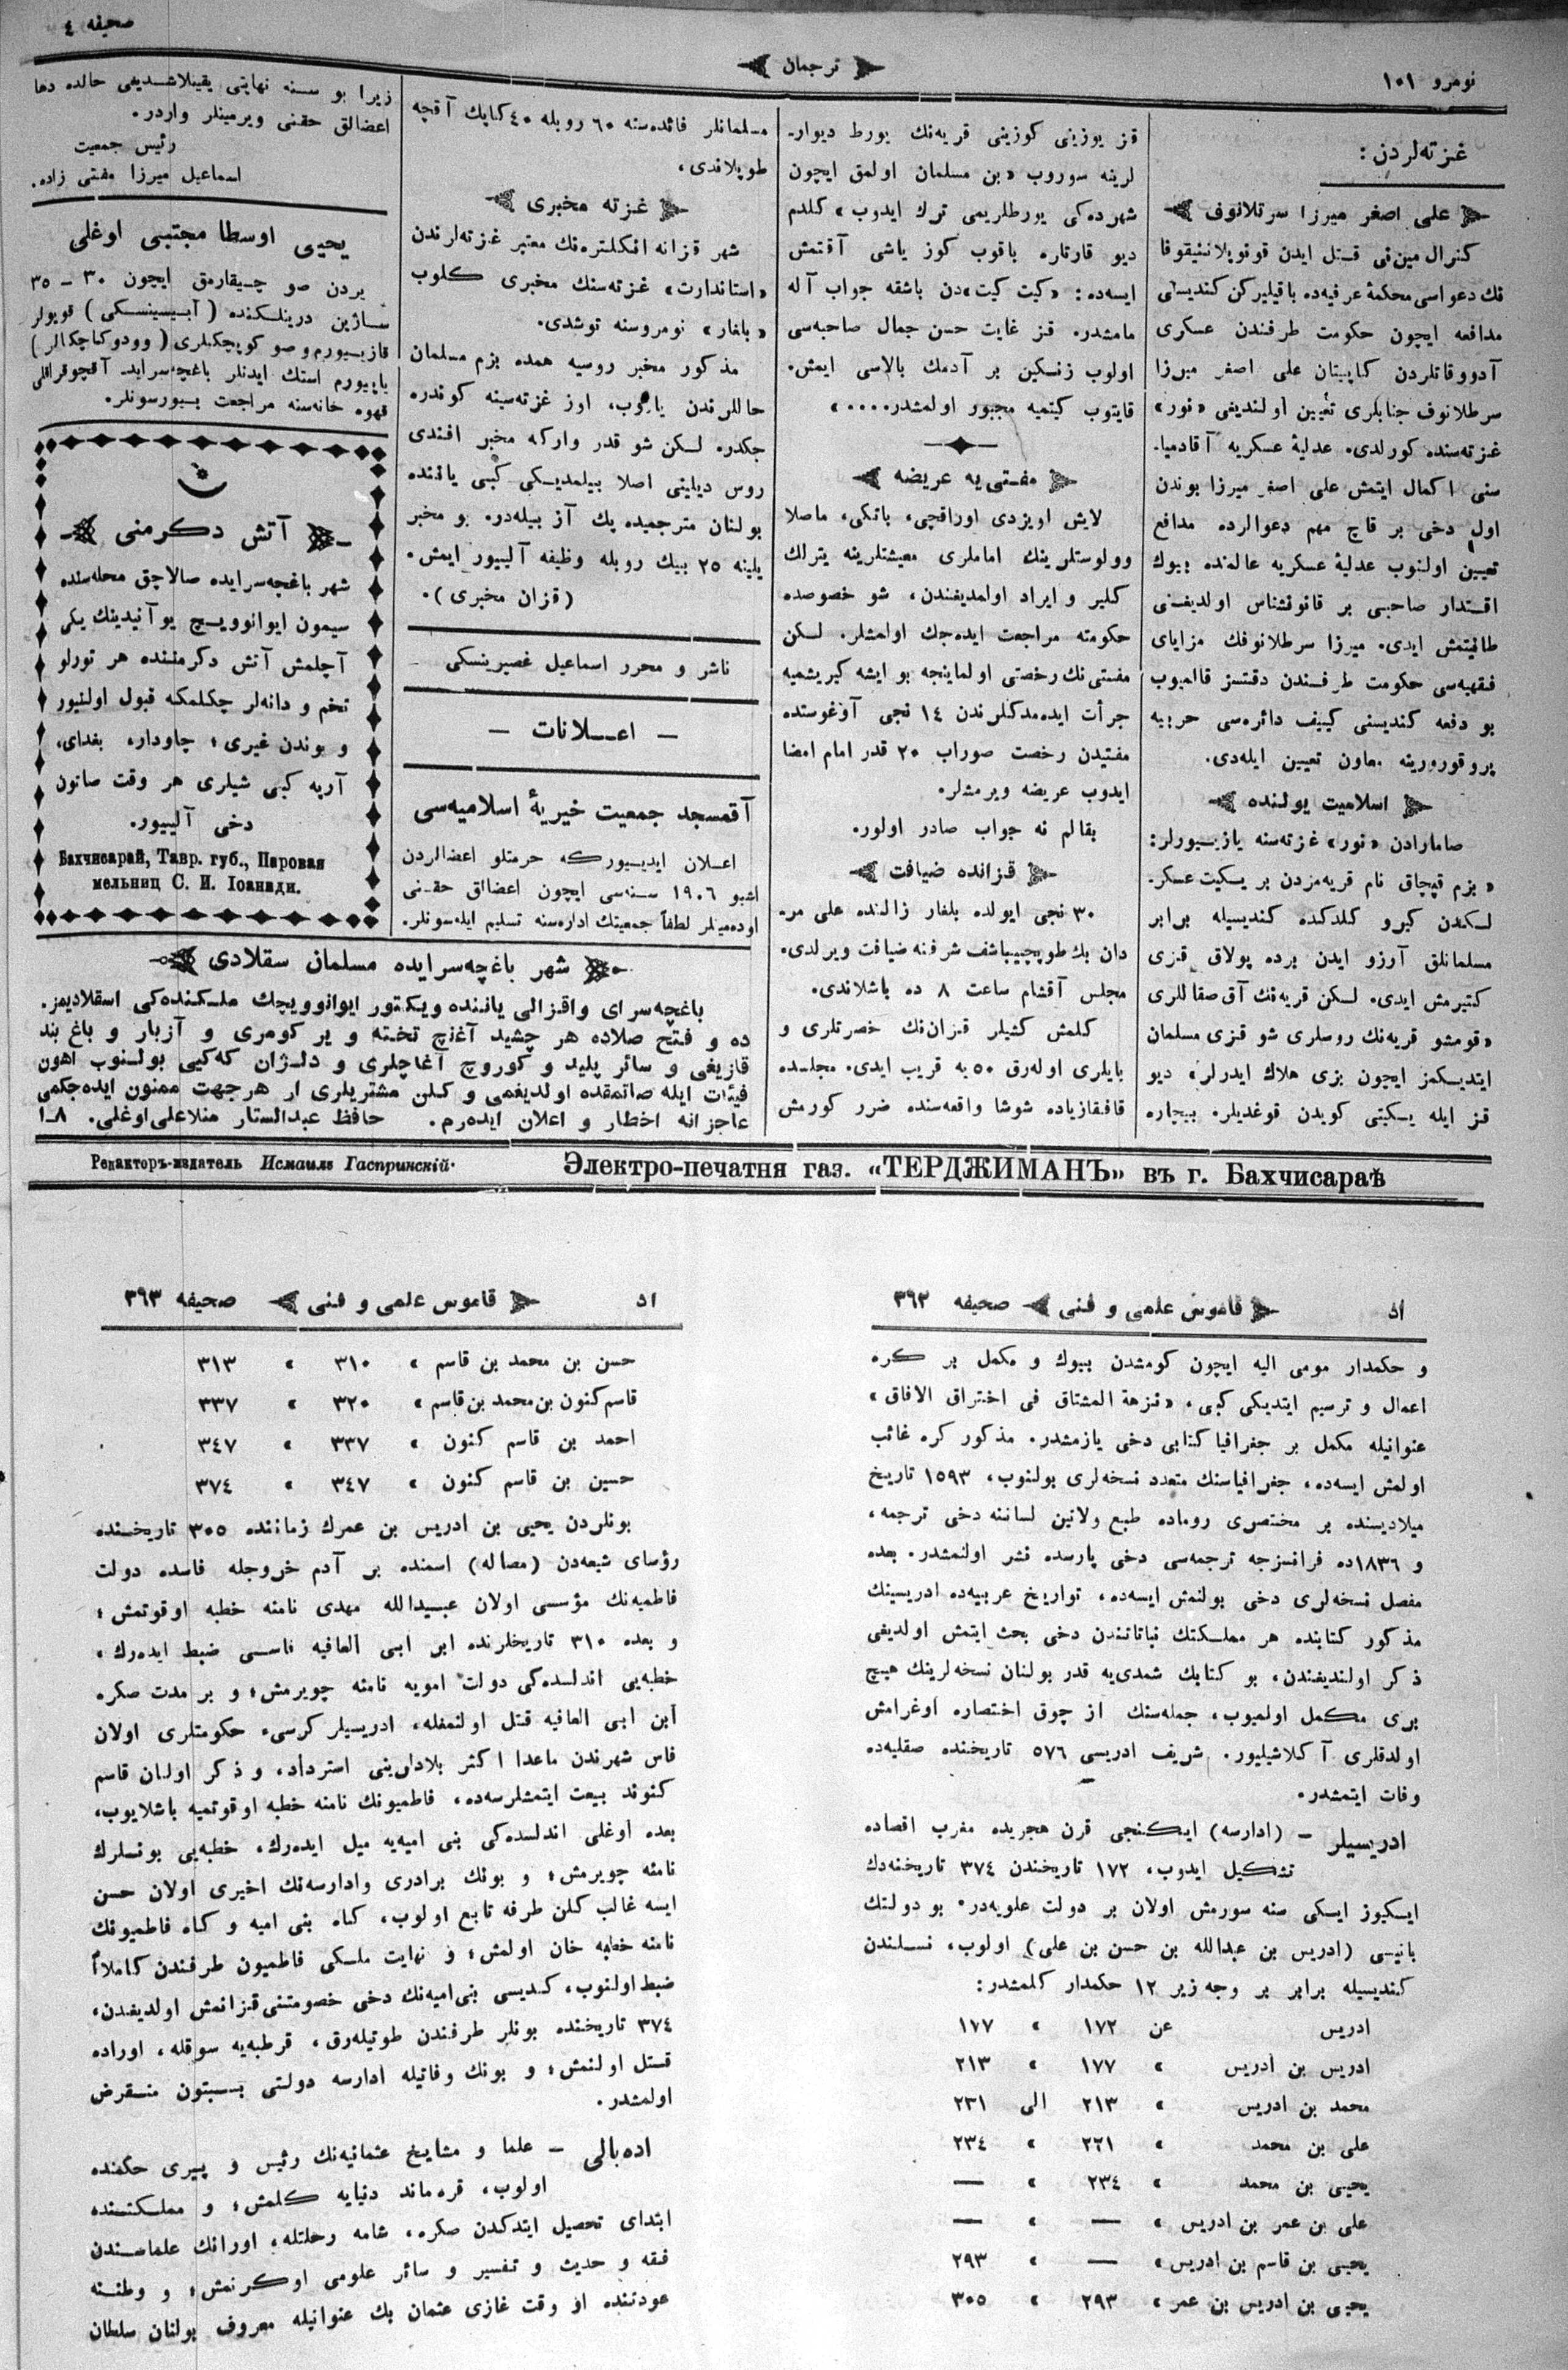 نومرو ١٠١
ترجمان
صحیفه ٤
غزته‌لردن :
علی اصغر میرزا سرتلانوف
کنرال مین‌نی قتل ایدن قونوپلاننیقوفا
نك دعواسی محکمهٔ عرفیه‌ده باقیلیرکن کندیسنی
مدافعه ایچون حکومت طرفندن عسکری
آدووقاتلردن کاپیتان علی اصغر میرزا
سرطلانوف جنابلری تعیین اولندیغی «نور»
غزته‌سنده کورلدی. عدلیهٔ عسکریه آقادمیا-
سنی اکمال ایتمش علی اصغر میرزا بوندن
اول دخی بر قاچ مهم دعوالرده مدافع
تعیین اولنوب عدلیهٔ عسکریه عالمنده بیوك
اقتدار صاحبی بر قانونشناس اولدیغنی
طانیتمش ایدی. میرزا سرطلانوفك مزایای
فقهیه‌سی حکومت طرفندن دقتسز قالمیوب
بو دفعه کندیسنی کییف دائره‌سی حربیه
پروقورورینه معاون تعیین ایله‌دی.
اسلامیت یولنده
صامارادن «نور» غزته‌سنه یازیورلر:
« بزم قپچاق نام قریه‌مزدن بر یکیت عسکر-
لکدن کیرو کلدکده کندیسیله برابر
مسلمانلق آرزو ایدن برده پولاق قزی
کتیرمش ایدی. لکن قریه‌نك آق صقاللری
«قومشو قریه‌نك روسلری شو قزی مسلمان
ایتدیکمز ایچون بزی هلاك ایدرلر» دیو
قز ایله یکیتی کویدن قوغدیلر. بیچاره
قز یوزینی کوزینی قریه‌نك یورط دیوار-
لرینه سوروب «بن مسلمان اولمق ایچون
شهرده‌کی یورطلریمی ترك ایدوب» کلدم
دیو قارتاره باقوب کوز یاشی آقتمش
ایسه‌ده: «کیت کیت»دن باشقه جواب آله
مامشدر. قز غایت حسن جمال صاحبه‌سی
اولوب زنکین بر آدمك بالاسی ایمش.
قایتوب کیتمیه مجبور اولمشدر....»
مفتی‌یه عریضه
لایش اویزدی اوراقچی، باتکی، ماصلا
وولوستلرینك اماملری معیشتلرینه یترلك
کلیر و ایراد اولمدیغندن، شو خصوصده
حکومته مراجعت ایده‌جك اولمشلر. لکن
مفتی‌نك رخصتی اولماینجه بو ایشه کیریشمیه
جرأت ایده‌مدکلرندن ١٤ نجی آوغوستده
مفتیدن رخصت صوراب ٢٠ قدر امام امضا
ایدوب عریضه ویرمشلر.
بقالم نه جواب صادر اولور.
قزانده ضیافت
٣٠ نجی ایولده بلغار زالنده علی مر-
دان بك طوپچیباشف شرفنه ضیافت ویرلدی.
مجلس آقشام ساعت ٨ ده باشلاندی.
کلمش کشیلر قزان‌نك حضرتلری و
بایلری اوله‌رق ٥٠ به قریب ایدی. مجلسده
قافقازیاده شوشا واقعه‌سنده ضرر کورمش
مسلمانلر فائده‌سنه ٦٠ روبله ٤٠ کاپك آقچه
طوپلاندی.
غزته مخبری
شهر قزانه انکلتره‌نك معتبر غزته‌لرندن
«استاندارت» غزته‌سنك مخبری کلوب
«بلغار» نومروسنه توشدی.
مذکور مخبر روسیه همده بزم مسلمان
حاللرندن یازوب، اوز غزته‌سینه کوندره
جکدر. لکن شو قدر وارکه مخبر افندی
روس دیلینی اصلا بیلمدیکی کبی یاننده
بولنان مترجمیده پك آز بیله‌در. بو مخبر
یلینه ٢٥ بیك روبله وظیفه آلییور ایمش.
(قزان مخبری).
ناشر و محرر اسماعیل غصپرینسکی
— اعلانات —
آقمسجد جمعیت خیریهٔ اسلامیه‌سی
اعلان ایدییورکه حرمتلو اعضالردن
اشبو ١٩٠٦ سنه‌سی ایچون اعضالق حقنی
اوده‌مینلر لطفاً جمعیتك اداره‌سنه تسلیم ایله‌سونلر.
زیرا بو سنه نهایتی یقینلاشدیغی حالده دها
اعضالق حقنی ویرمینلر واردر.
رئیس جمعیت
اسماعیل میرزا مفتی زاده.
یحیی اوسطا مجتبی اوغلی
یردن صو چیقارمق ایچون ٣٠ – ٣٥
ساژین درینلکنده (آبیسینسکی) قویولر
قازییورم و صو کوپچکلری (وودوکاچکالر)
یاپیورم استك ایدنلر باغچه‌سرایده آقچوقراقلی
قهوه خانه‌سنه مراجعت بیورسونلر.
آتش دکرمنی
شهر باغچه‌سرایده صالاچق محله‌سنده
سیمون ایوانوویچ یوآنیدینك یکی
آچلمش آتش دکرمننده هر تورلو
تخم و دانه‌لر چکلمکه قبول اولنیور
و بوندن غیری ؛ چاودار، بغدای،
آرپه کبی شیلری هر وقت صاتون
دخی آلییور.
Бахчисарай, Тавр. губ., Паровая
мельниц С. И. Іоанади.
شهر باغچه‌سرایده مسلمان سقلادی
باغچه‌سرای واقزالی یاننده ویکتور ایوانوویچك ملکنده‌کی اسقلادیمز-
ده و فتح صلاده هر چشید آغاج تخته و یر کومری و آزبار و باغ بند
قازیغی و سائر پلید و کوروچ آغاچلری و دلژان که‌کیی بولنوب اهون
فیئات ایله صاتمقده اولدیغمی و کلن مشتریلری ار هرجهت ممنون ایده‌جکمی
عاجزانه اخطار و اعلان ایده‌رم. حافظ عبدالستار منلاعلی‌اوغلی. ٨ـ١
Редакторъ-издатель Исмаилъ Гаспринскій.
Электро-печатня газ. «ТЕРДЖИМАНЪ» въ г. Бахчисараѣ
اد قاموس علمی و فنی صحیفه ٣٩٢
و حکمدار مومی الیه ایچون کومشدن بیوك و مکمل بر کره
اعمال و ترسیم ایتدیکی کبی، «نزهة المشتاق فی اختراق الافاق»
عنوانیله مکمل بر جغرافیا کتابی دخی یازمشدر. مذکور کره غائب
اولمش ایسه‌ده، جغرافیاسنك متعدد نسخه‌لری بولنوب، ١٥٩٣ تاریخ
میلادیسنده بر مختصری روماده طبع ولاتین لساننه دخی ترجمه،
و ١٨٣٦ده فرانسزجه ترجمه‌سی دخی پارسده نشر اولنمشدر. بعده
مفصل نسخه‌لری دخی بولنمش ایسه‌ده، تواریخ عربیه‌ده ادریسینك
مذکور کتابنده هر مملکتك نباتاتندن دخی بحث ایتمش اولدیغی
ذکر اولندیغندن، بو کتابك شمدی‌یه قدر بولنان نسخه‌لرینك هیچ
بری مکمل اولمیوب، جمله‌سنك از چوق اختصاره اوغرامش
اولدقلری آکلاشیلیور. شریف ادریسی ٥٧٦ تاریخنده صقلیه‌ده
وفات ایتمشدر.
ادریسیلر – (ادارسه) ایکنجی قرن هجریده مغرب اقصاده
تشکیل ایدوب، ١٧٢ تاریخندن ٣٧٤ تاریخنه‌دك
ایکیوز ایکی سنه سورمش اولان بر دولت علویه‌در. بو دولتك
بانیسی (ادریس بن عبدالله بن حسن بن علی) اولوب، نسلندن
کندیسیله برابر بر وجه زیر ١٢ حکمدار کلمشدر:
ادریس عن ١٧٢ » ١٧٧
ادریس بن ادریس » ١٧٧ » ٢١٣
محمد بن ادریس » ٢١٣ الی ٢٣١
علی بن محمد » ٢٢١ » ٢٣٤
یحیی بن محمد » ٢٣٤ » —
علی بن عمر بن ادریس » — » —
یحیی بن قاسم بن ادریس » — » ٢٩٣
یحیی بن ادریس بن عمر » ٢٩٣ » ٣٠٥
اد قاموس علمی و فنی صحیفه ٣٩٣
حسن بن محمد بن قاسم » ٣١٠ » ٣١٣
قاسم کنون بن محمد بن قاسم » ٣٢٠ » ٣٣٧
احمد بن قاسم کنون » ٣٣٧ » ٣٤٧
حسین بن قاسم کنون » ٣٤٧ » ٣٧٤
بونلردن یحیی بن ادریس بن عمرك زماننده ٣٠٥ تاریخنده
رؤسای شیعه‌دن (مصاله) اسمنده بر آدم خروجله فاسده دولت
فاطمیه‌نك مؤسسی اولان عبیدالله مهدی نامنه خطبه اوقوتمش؛
و بعده ٣١٠ تاریخلرنده ابن ابی العافیه فاسی ضبط ایده‌رك،
خطبه‌یی اندلسده‌کی دولت امویه نامنه چویرمش؛ و بر مدت صکره
ابن ابی العافیه قتل اولنمغله، ادریسیلر کرسیء حکومتلری اولان
فاس شهرندن ماعدا اکثر بلادلرینی استرداد، و ذکر اولنان قاسم
کنونه بیعت ایتمشلرسه‌ده، فاطمیونك نامنه خطبه اوقوتمیه باشلایوب،
بعده اوغلی اندلسده‌کی بنی امیه‌یه میل ایده‌رك، خطبه‌یی بونلرك
نامنه چویرمش؛ و بونك برادری وادارسه‌نك اخیری اولان حسن
ایسه غالب کلن طرفه تابع اولوب، کاه بنی امیه و کاه فاطمیونك
نامنه خطبه خان اولمش؛ و نهایت ملکی فاطمیون طرفندن کاملاً
ضبط اولنوب، کندیسی بنی امیه‌نك دخی خصومتنی قزانمش اولدیغندن،
٣٧٤ تاریخنده بونلر طرفندن طوتیله‌رق، قرطبه‌یه سوقله، اوراده
قتل اولنمش؛ و بونك وفاتیله ادارسه دولتی بسبتون منقرض
اولمشدر.
اده‌بالی – علما و مشایخ عثمانیه‌نك رئیس و پیری حکمنده
اولوب، قره‌ماند دنیایه کلمش؛ و مملکتنده
ابتدای تحصیل ایتدکدن صکره، شامه رحلتله، اورانك علماسندن
فقه و حدیث و تفسیر و سائر علومی اوکرنمش؛ و وطننه
عودتنده او وقت غازی عثمان بك عنوانیله معروف بولنان سلطان